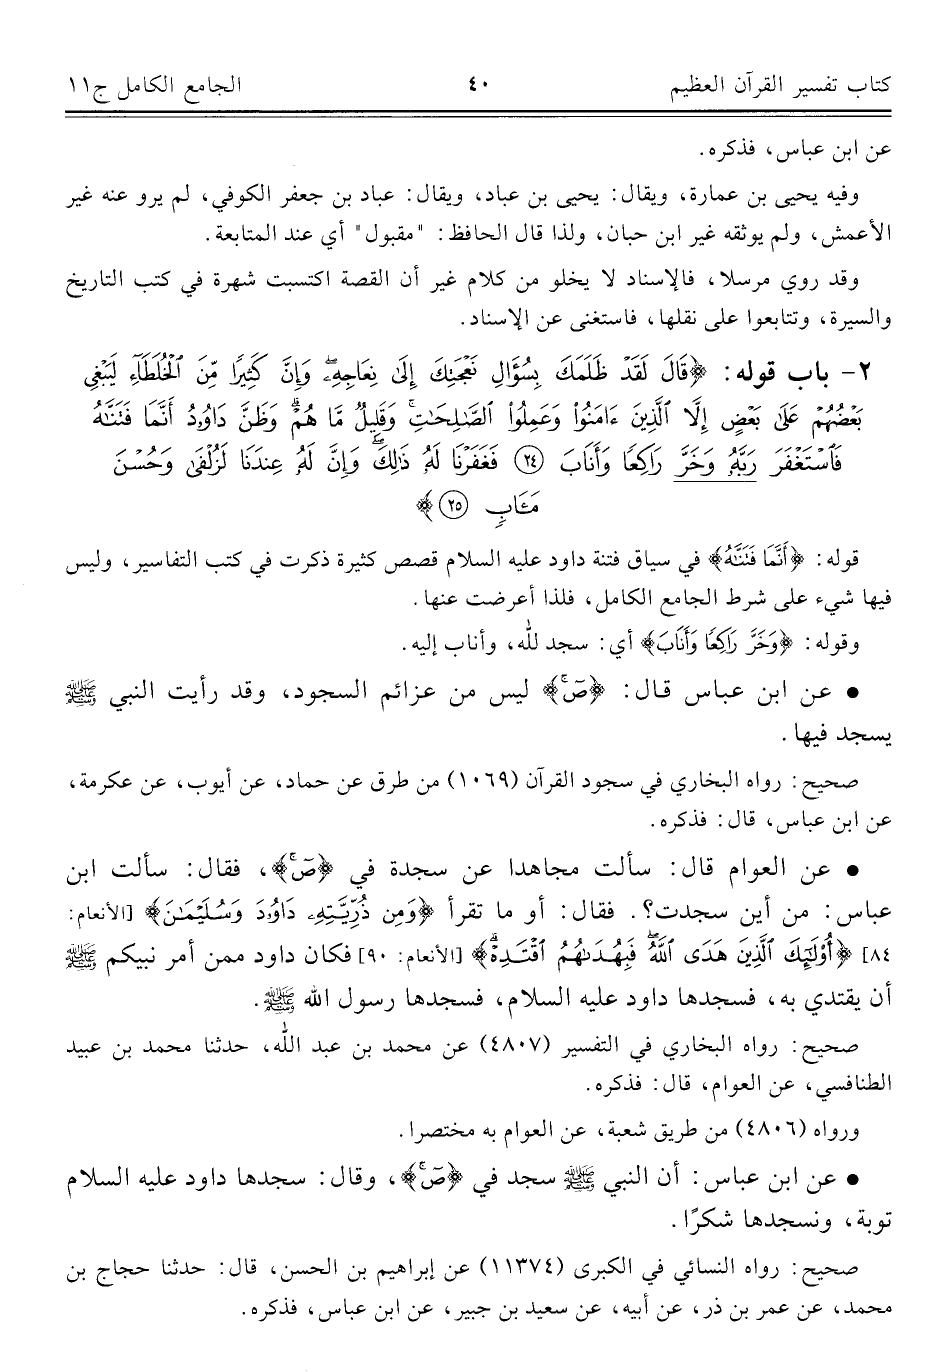 كتاب تفسير القرآن العظيم ٤٠ الجامع الكامل ج١١
عن ابن عباس، فذكره.
وفيه يحيى بن عمارة، ويقال: يحيى بن عباد، ويقال: عباد بن جعفر الكوفي، لم يرو عنه غير
الأعمش، ولم يوثقه غير ابن حبان، ولذا قال الحافظ: "مقبول" أي عند المتابعة.
وقد روي مرسلا، فالإسناد لا يخلو من كلام غير أن القصة اكتسبت شهرة في كتب التاريخ
والسيرة، وتتابعوا على نقلها، فاستغنى عن الإسناد.
٢- باب قوله: ﴿قَالَ لَقَدْ ظَلَمَكَ بِسُؤَالِ نَعْجَتِكَ إِلَىٰ نِعَاجِهِۦ ۖ وَإِنَّ كَثِيرًا مِّنَ ٱلْخُلَطَآءِ لَيَبْغِى
بَعْضُهُمْ عَلَىٰ بَعْضٍ إِلَّا ٱلَّذِينَ ءَامَنُوا۟ وَعَمِلُوا۟ ٱلصَّـٰلِحَـٰتِ وَقَلِيلٌ مَّا هُمْ ۗ وَظَنَّ دَاوُۥدُ أَنَّمَا فَتَنَّـٰهُ
فَٱسْتَغْفَرَ رَبَّهُۥ وَخَرَّ رَاكِعًا وَأَنَابَ ٢٤ فَغَفَرْنَا لَهُۥ ذَٰلِكَ ۖ وَإِنَّ لَهُۥ عِندَنَا لَزُلْفَىٰ وَحُسْنَ
مَـَٔابٍ ٢٥﴾
قوله: ﴿أَنَّمَا فَتَنَّـٰهُ﴾ في سياق فتنة داود عليه السلام قصص كثيرة ذكرت في كتب التفاسير، وليس
فيها شيء على شرط الجامع الكامل، فلذا أعرضت عنها.
وقوله: ﴿وَخَرَّ رَاكِعًا وَأَنَابَ﴾ أي: سجد لله، وأناب إليه.
• عن ابن عباس قال: ﴿صٓ﴾ ليس من عزائم السجود، وقد رأيت النبي ﷺ
يسجد فيها.
صحيح: رواه البخاري في سجود القرآن (١٠٦٩) من طرق عن حماد، عن أيوب، عن عكرمة،
عن ابن عباس، قال: فذكره.
• عن العوام قال: سألت مجاهدا عن سجدة في ﴿صٓ﴾، فقال: سألت ابن
عباس: من أين سجدت؟. فقال: أو ما تقرأ ﴿وَمِن ذُرِّيَّتِهِۦ دَاوُۥدَ وَسُلَيْمَـٰنَ﴾ [الأنعام:
٨٤] ﴿أُو۟لَـٰٓئِكَ ٱلَّذِينَ هَدَى ٱللَّهُ ۖ فَبِهُدَىٰهُمُ ٱقْتَدِهْ ۗ﴾ [الأنعام: ٩٠] فكان داود ممن أمر نبيكم ﷺ
أن يقتدي به، فسجدها داود عليه السلام، فسجدها رسول الله ﷺ.
صحيح: رواه البخاري في التفسير (٤٨٠٧) عن محمد بن عبد الله، حدثنا محمد بن عبيد
الطنافسي، عن العوام، قال: فذكره.
ورواه (٤٨٠٦) من طريق شعبة، عن العوام به مختصرا.
• عن ابن عباس: أن النبي ﷺ سجد في ﴿صٓ﴾، وقال: سجدها داود عليه السلام
توبة، ونسجدها شكرًا.
صحيح: رواه النسائي في الكبرى (١١٣٧٤) عن إبراهيم بن الحسن، قال: حدثنا حجاج بن
محمد، عن عمر بن ذر، عن أبيه، عن سعيد بن جبير، عن ابن عباس، فذكره.